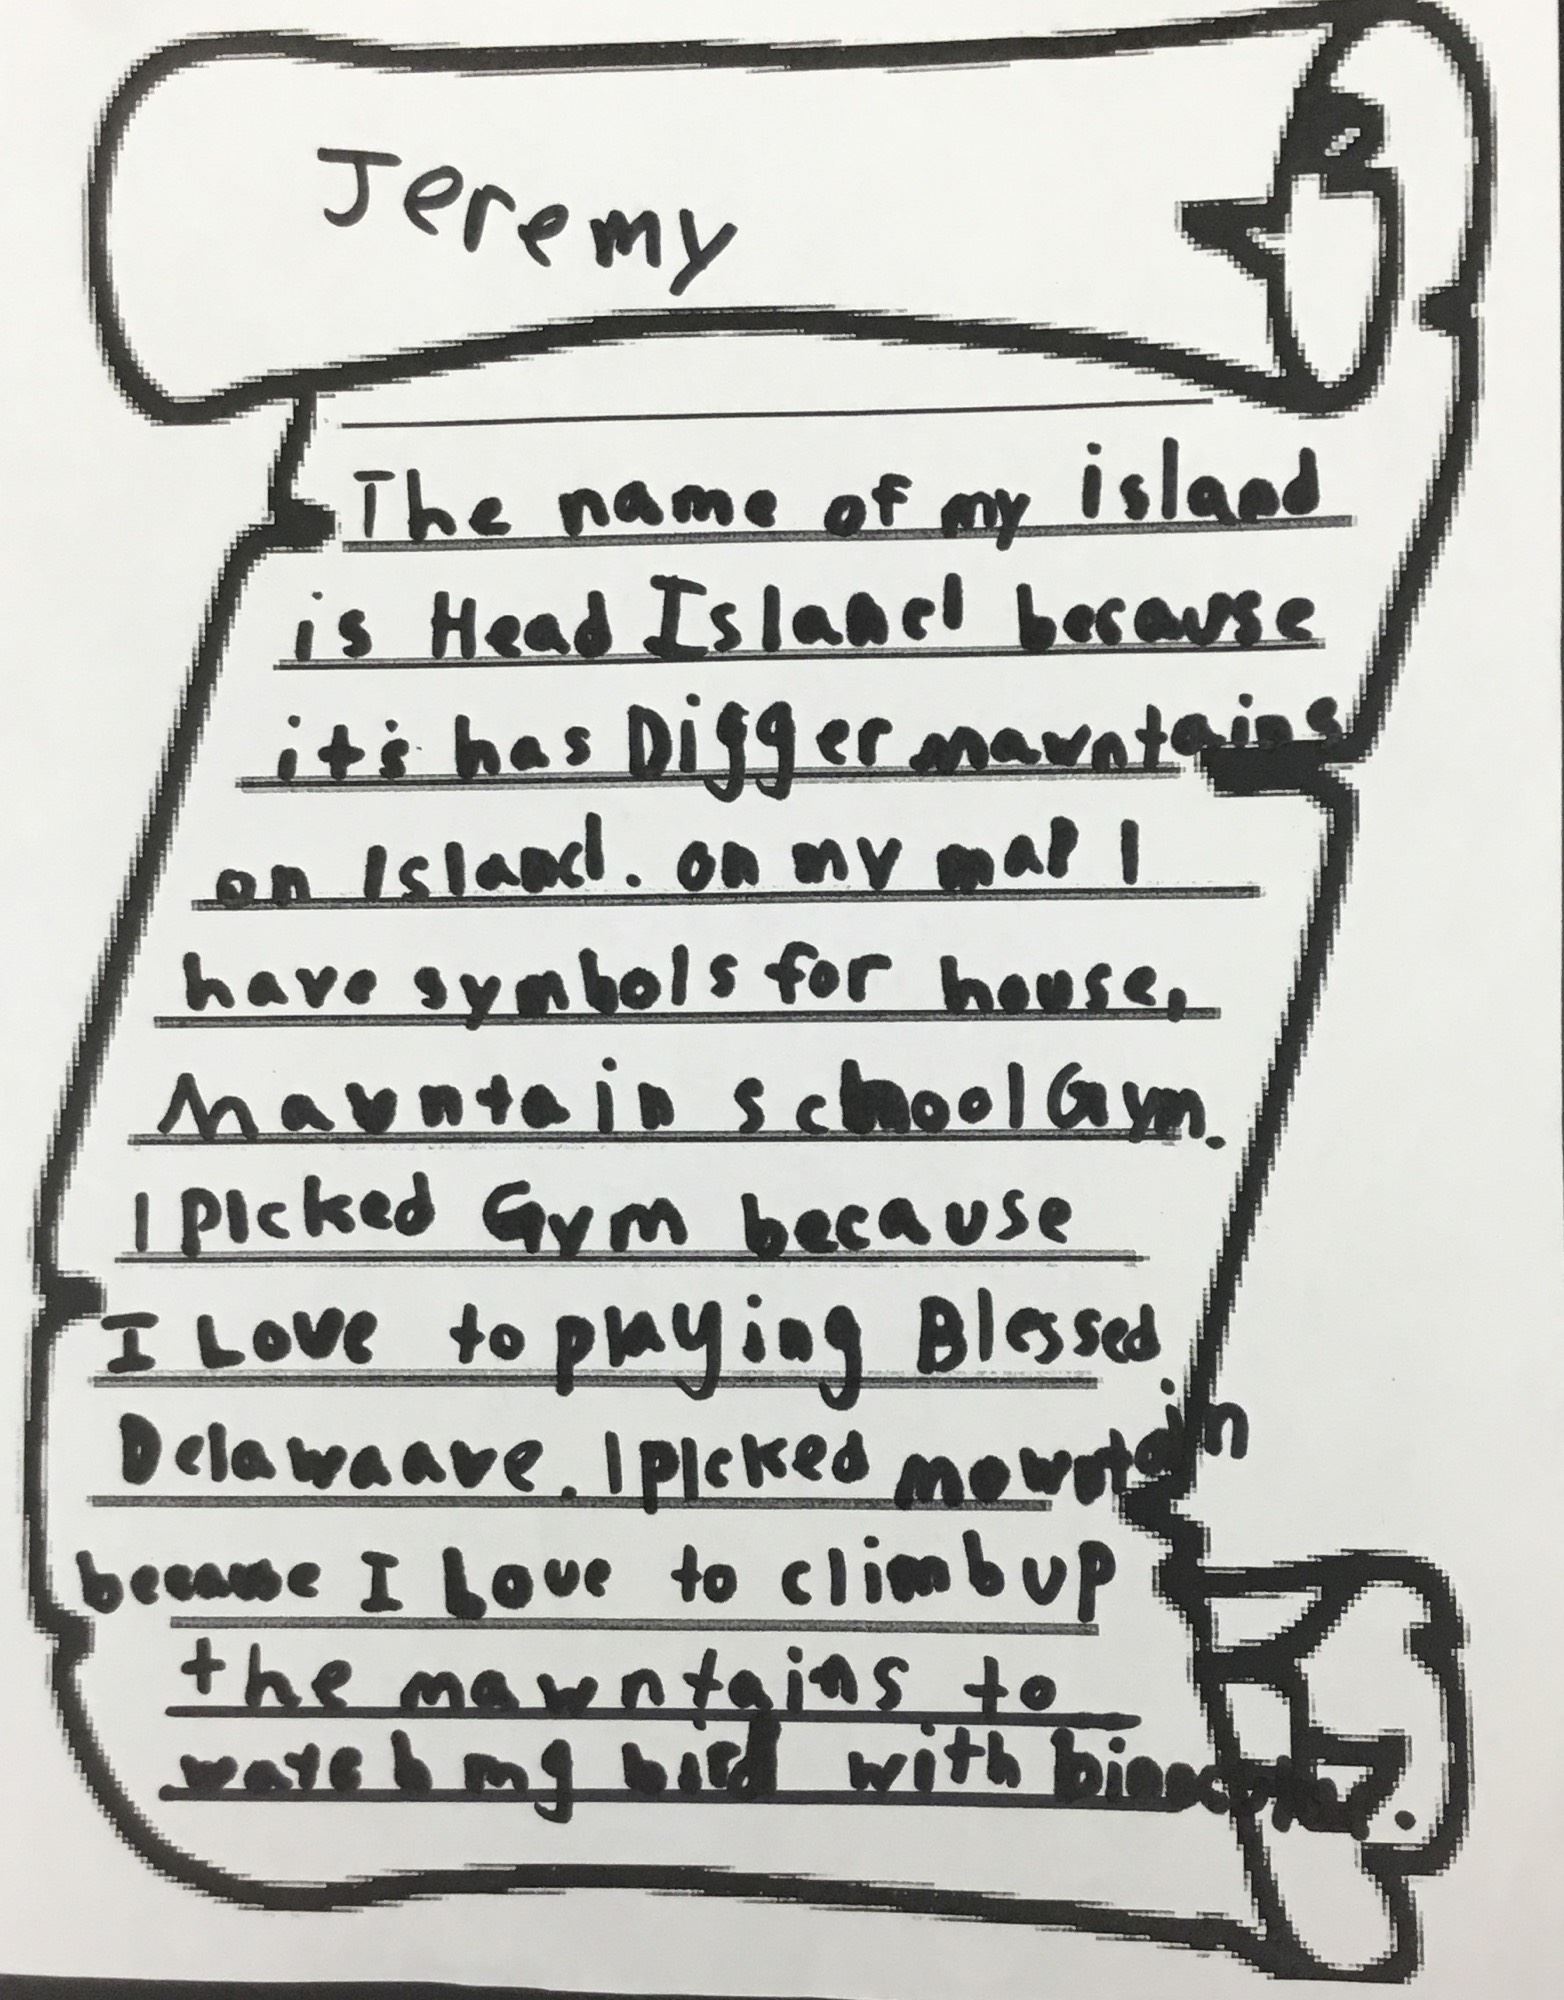 Jeremy
The name of my island
is Head Island because
it's has Digger mauntains
on Island. on my map I
have symbols for house,
Mauntain school Gym.
I picked Gym because
I Love to playing Blessed
Delawaare. I picked mowntain
because I Love to climb up
the mawntains to
watch my bird with